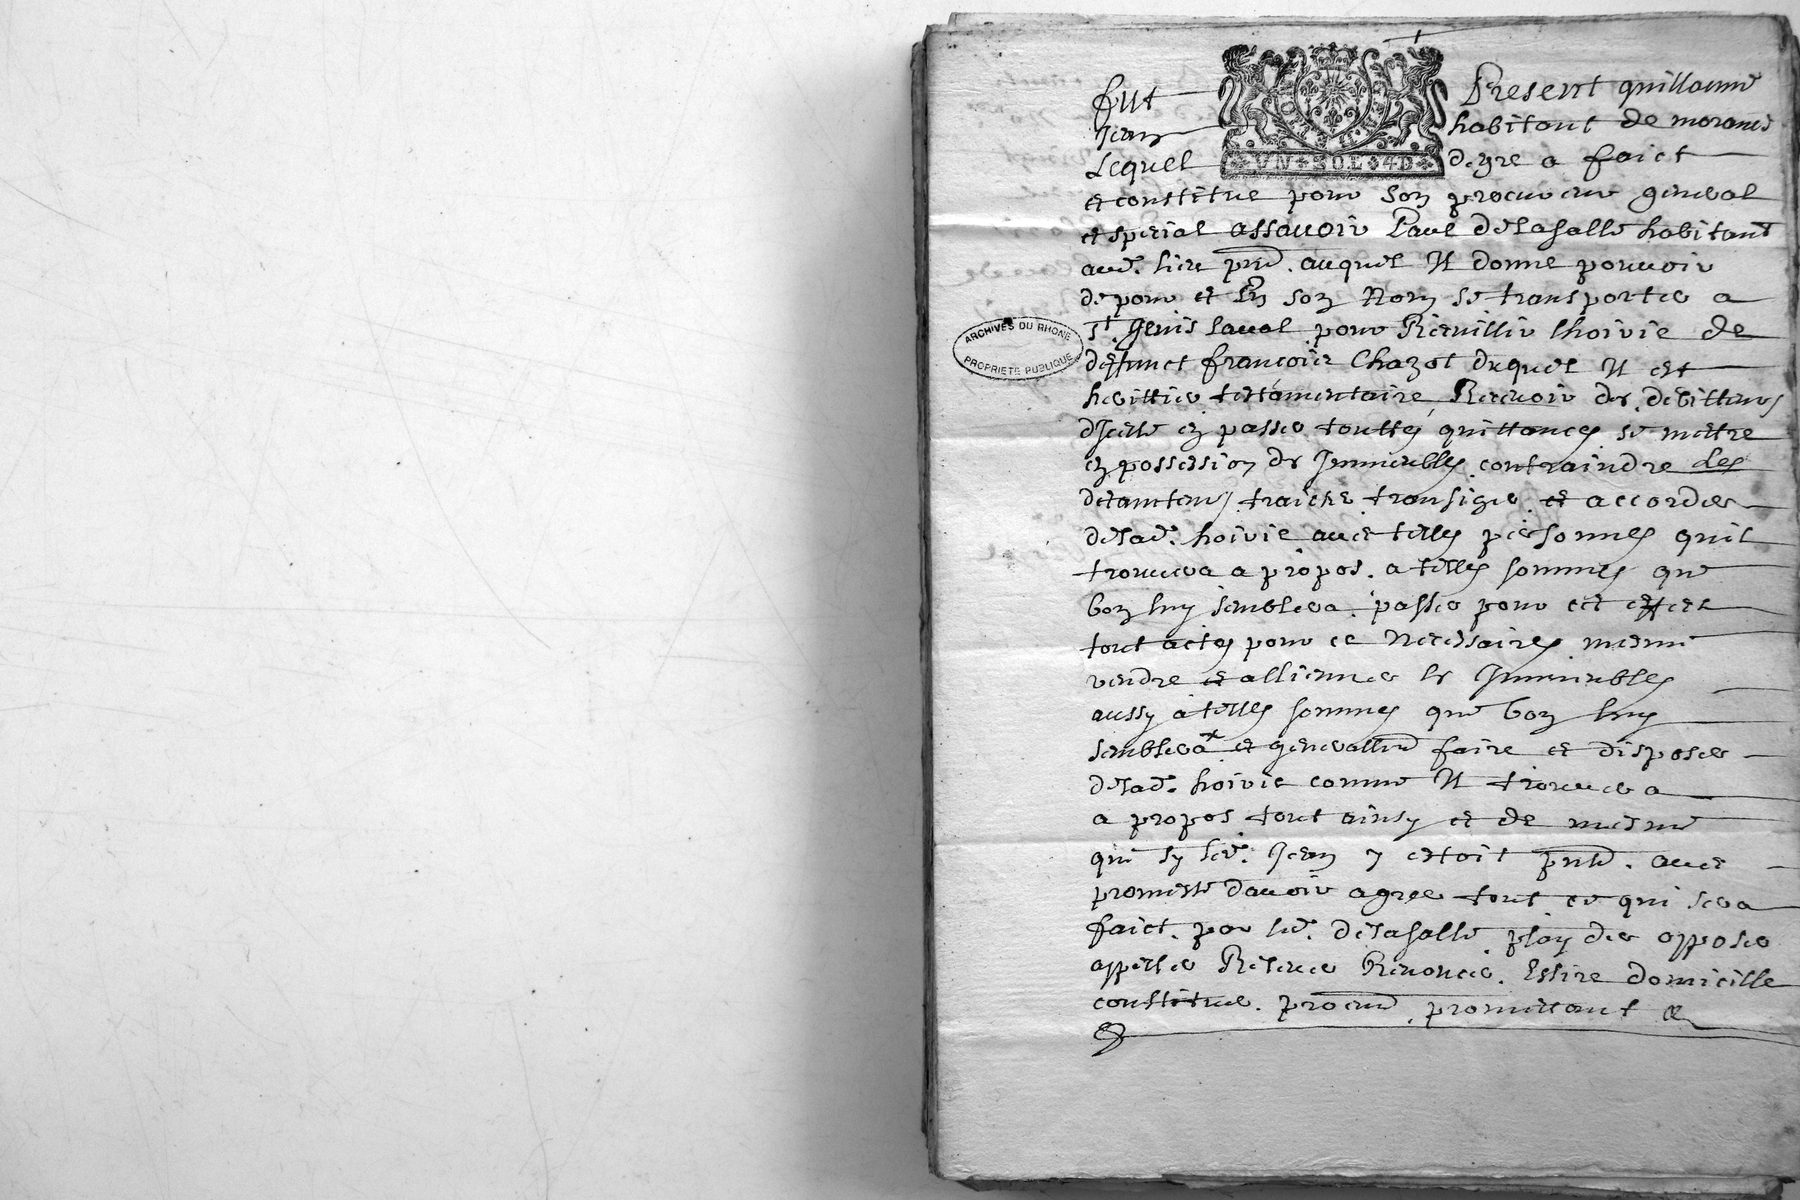 fut Present guillaume
Jean habitant de morancé
Lequel VN SOL 4D de gre a faict
et constitue pour son procureur general
et special assavoir Paul delasalle habitant
aud. lieu pnt. auquel Il donne pouvoir
de pour et En son Nom se transporter a
St. Genis laval pour Recuillir lhoirie de
ARCHIVES DU RHONE
PROPRIETE PUBLIQUE
deffunct francois Chazot duquel Il est
herittier testamentaire, Recevoir des debitteurs
dJcelle en passer touttes quittances se mettre
en possession des Jmmeubles contraindre Les
detancteurs, traicter transiger et accorder
delad. hoirie avec telles personnes quil
trouvera a propos. a telles sommes que
bon luy semblera. passer pour cet effect
tout actes pour ce Necessaires mesme
vendre et alliener les Jmmeubles
aussy a telles sommes que bon luy
semblera x et generallemt faire et disposer
delad. hoirie comme Il trouvera
a propos tout ainsy et de mesme
que sy led. Jean y estoit pnt. avec
promesse davoir agree tout ce qui sera
faict. par led. delasalle, plaider opposer
appeller Relever Renoncer. Eslire domicille
constituer. procur promettant &